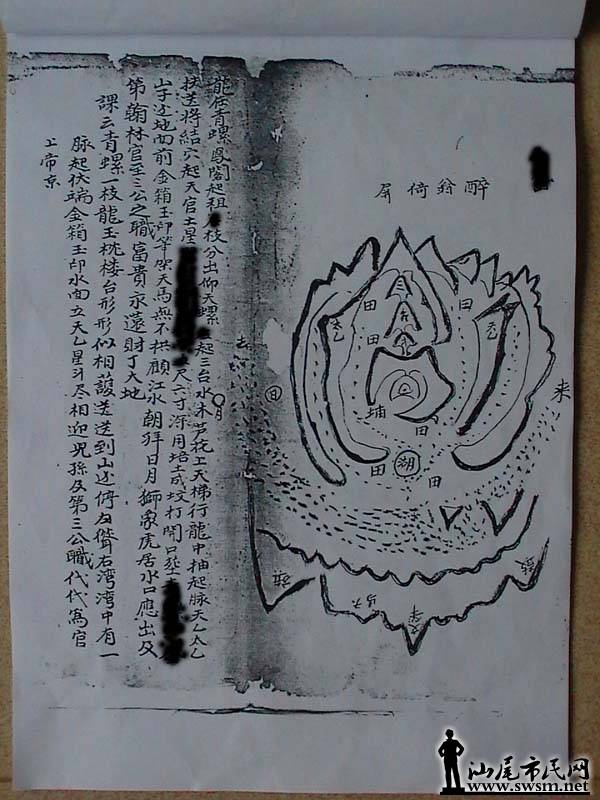 醉翁倚屏
龍 青螺鳳閣起祖 枝分出仰天螺 起三台水木芦花上天梯行龍中抽起脉天乙太乙
扶送將結穴起天官土星 尺六寸深用培土成坟打開口
山 地面前金箱玉印筆架天馬無不拱顧江水朝拜日月獅象虎居水口應出及
第翰林官至三公之職富貴永遠財丁大地
課云青螺一枝龍玉枕楼台形形似相護送送到山 右湾湾中有一
脉起伏端金箱玉印水面立天乙星斗尽相迎 孫及第三公職代代為官
上帝京
三
台
田
田
太乙
天乙
田
埔
田
湖
田
田
去
来
日
月
旗
汕尾市民网
www.swsm.net